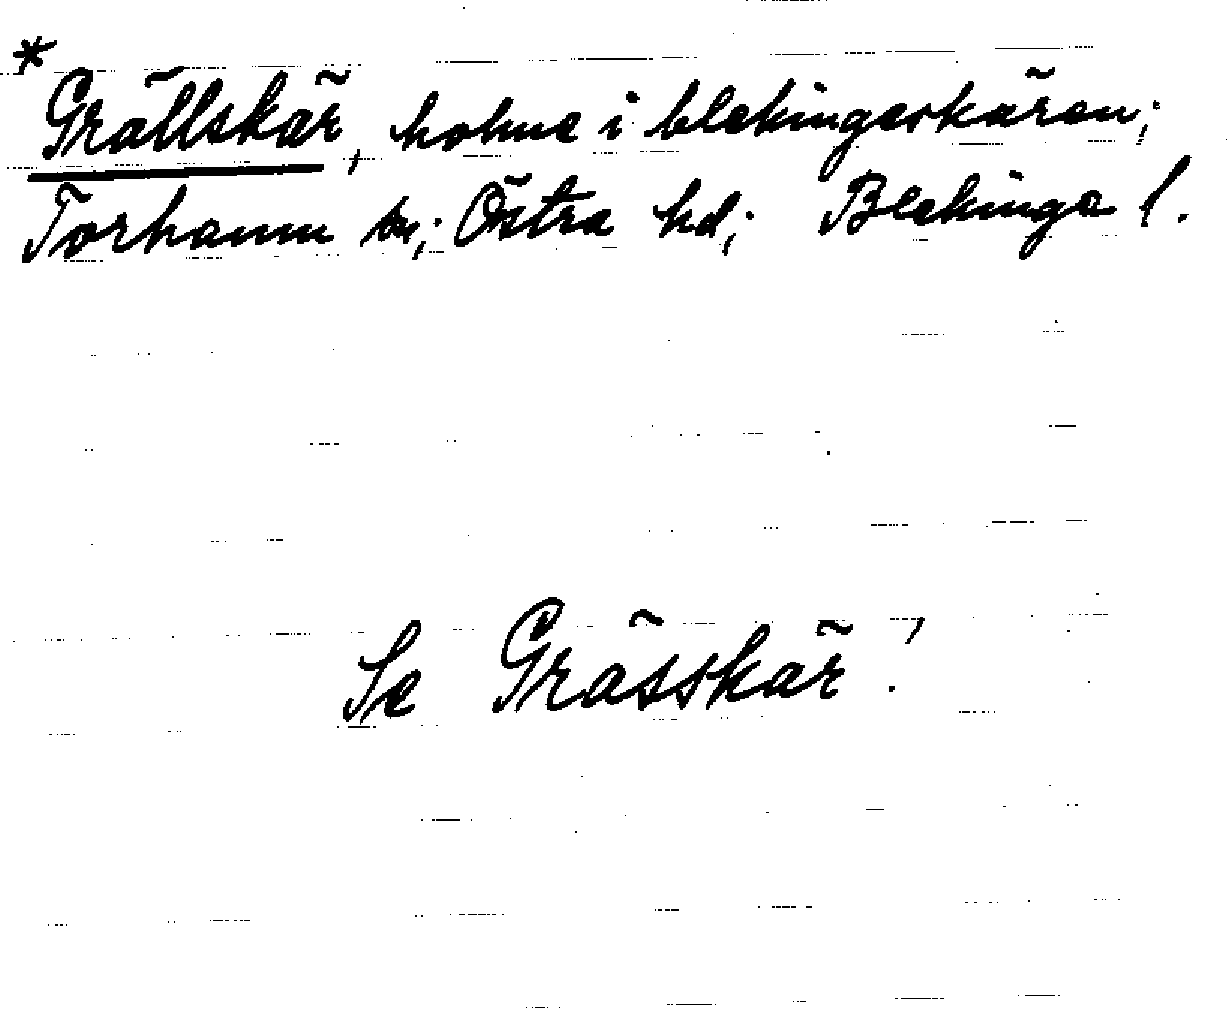 * Grällskär, holme i blekingeskären;
Torhamn sn; Östra hd; Blekinge l.
Se Grässkär!